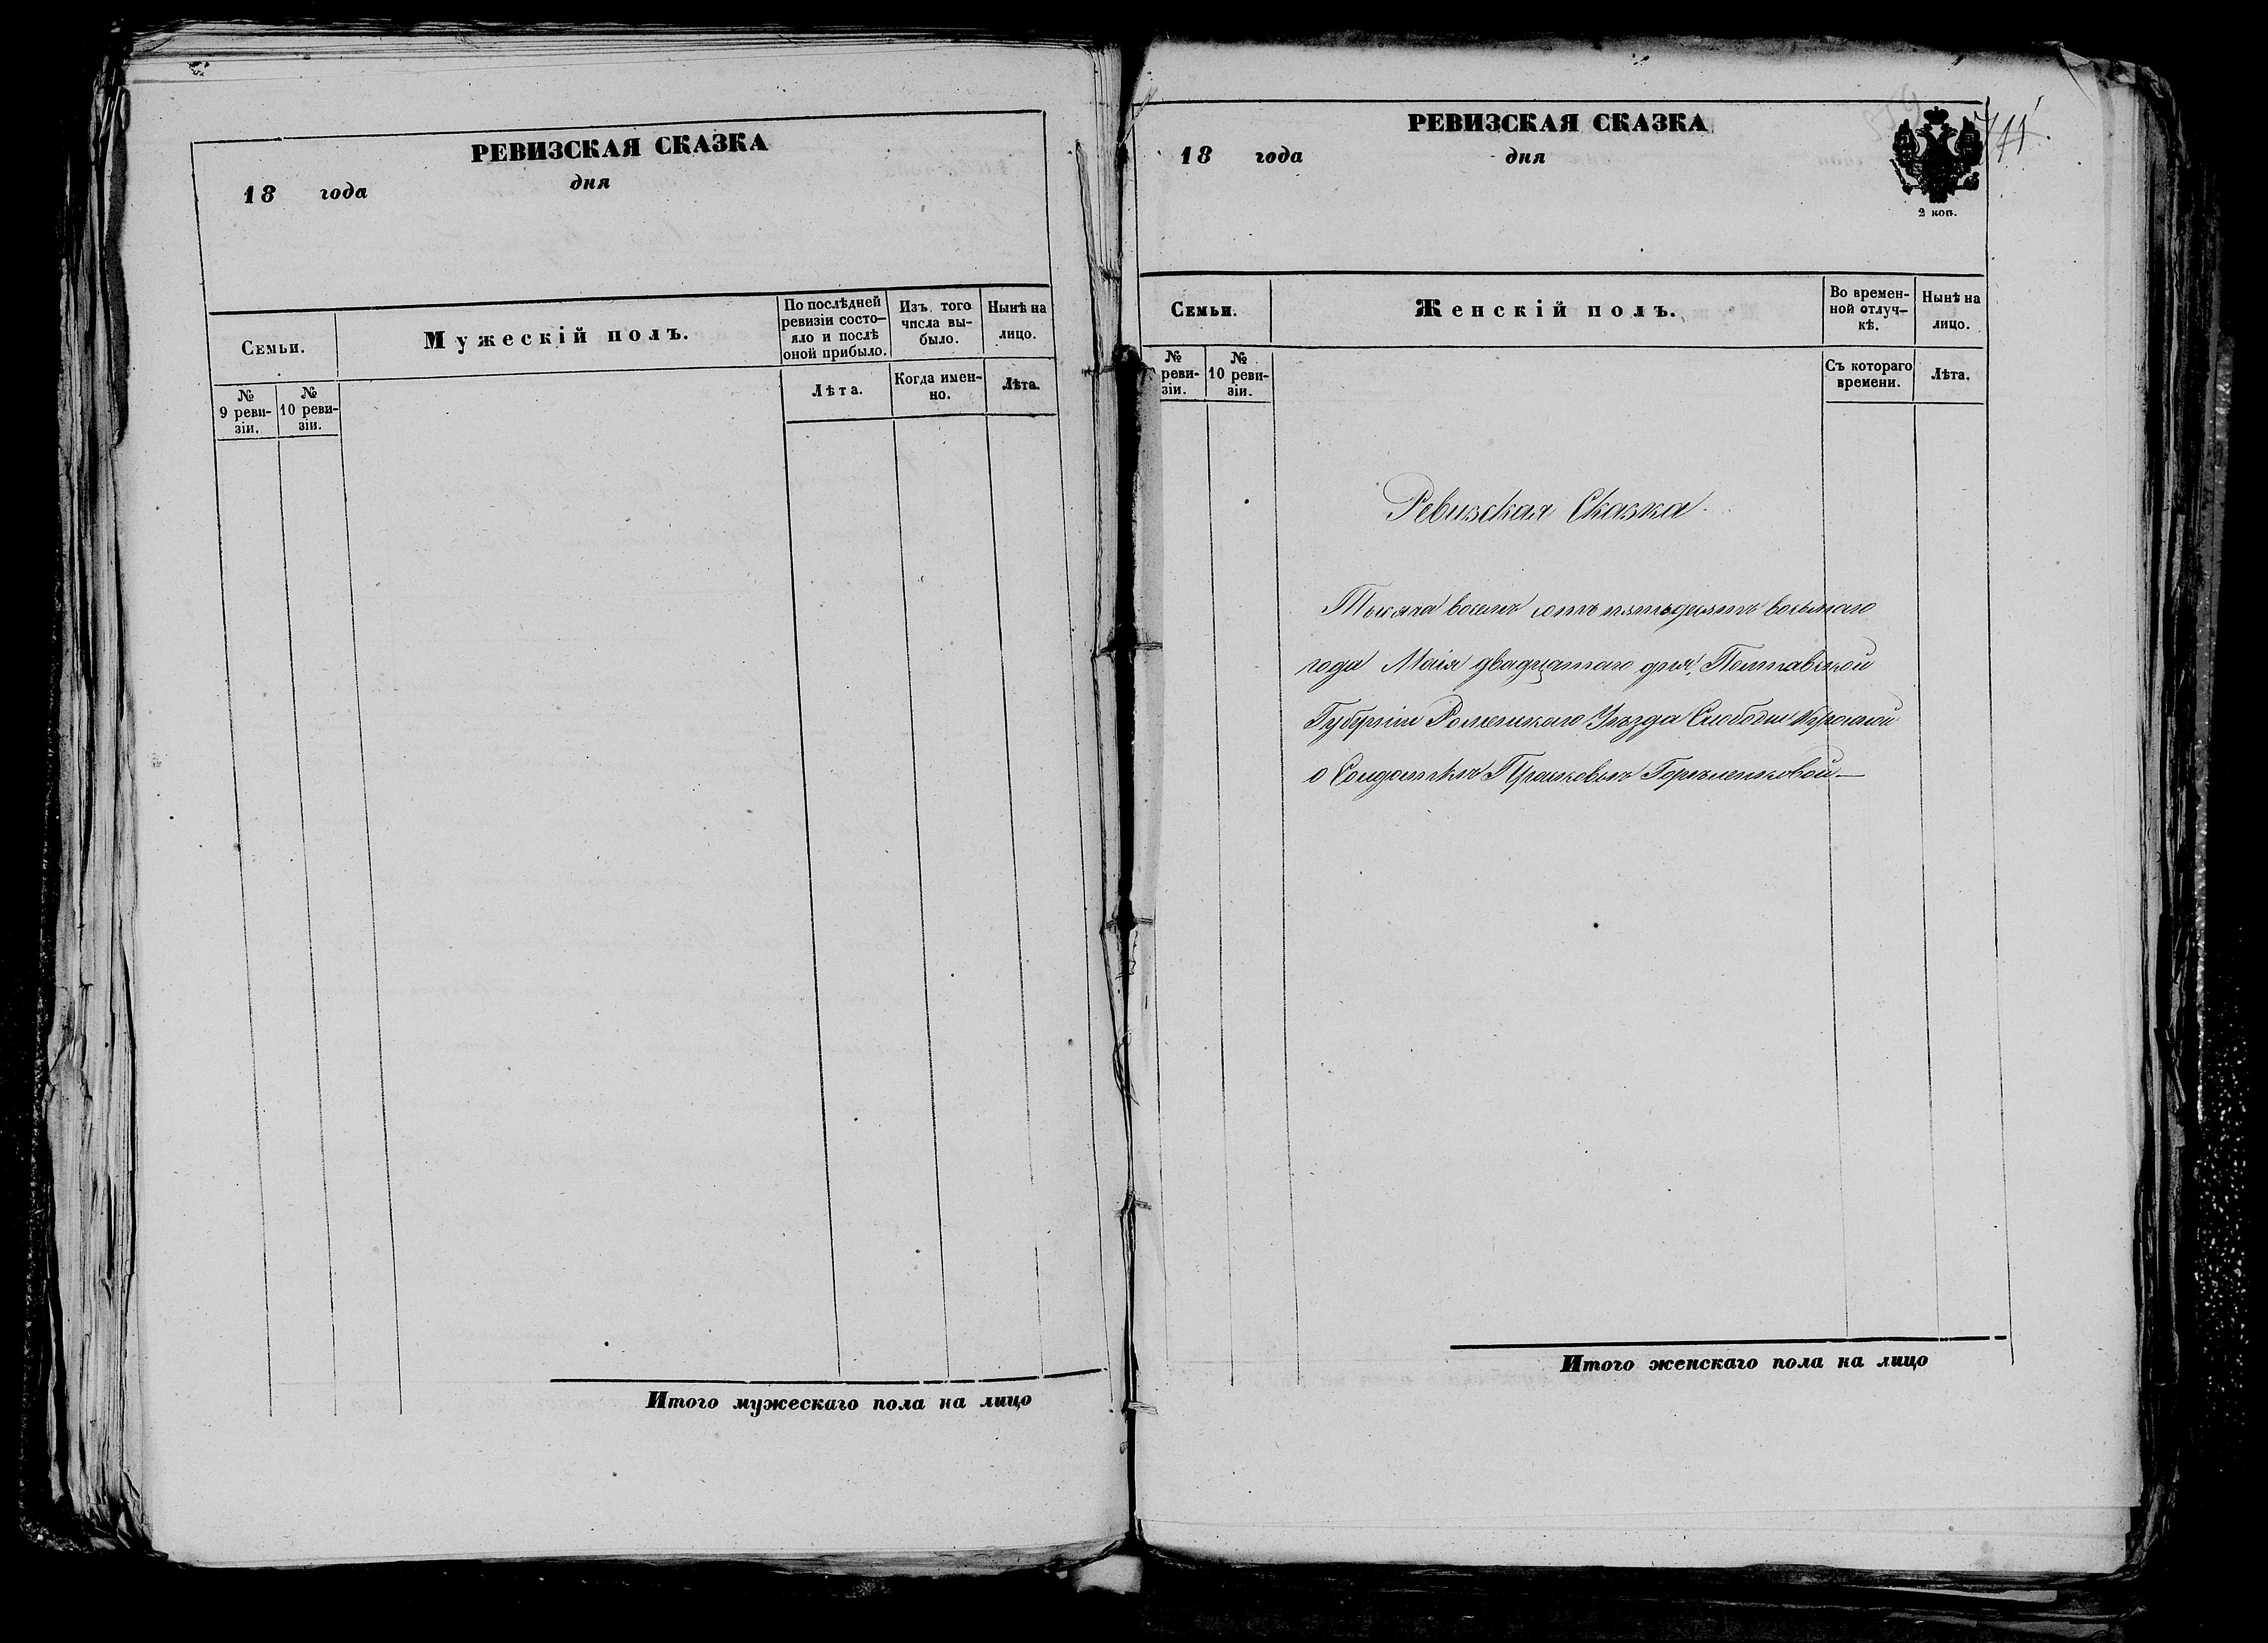 РЕВИЗСКАЯ СКАЗКА
18 года дня
Семьи.
Мужескій полъ.
По послѣдней ревизіи состо-
яло и послѣ оной прибыло.
Изъ того числа вы-
было.
Ныпѣ на лицо.
№ 9 реви-
зіи.
№ 10 реви-
зіи.
Лѣта.
Когда имен-
но.
Лѣта.
Итого мужескаго пола на лицо
РЕВИЗСКАЯ СКАЗКА
18 года дня
2 коп.
711.
Семьи.
Женскій полъ.
Во времен-
ной отлуч-
кѣ.
Нынѣ на лицо.
№ реви-
зіи.
№ 10 реви-
зіи.
Съ котораго времени.
Лѣта.
Ревизская Сказка
Тысяча восемь сотъ пятьдесятъ восьмаго
года Маія двадцатаго дня, Полтавской
Губерніи Роменскаго Уѣзда Слободы
о Солдаткѣ
Итого женскаго пола на лицо